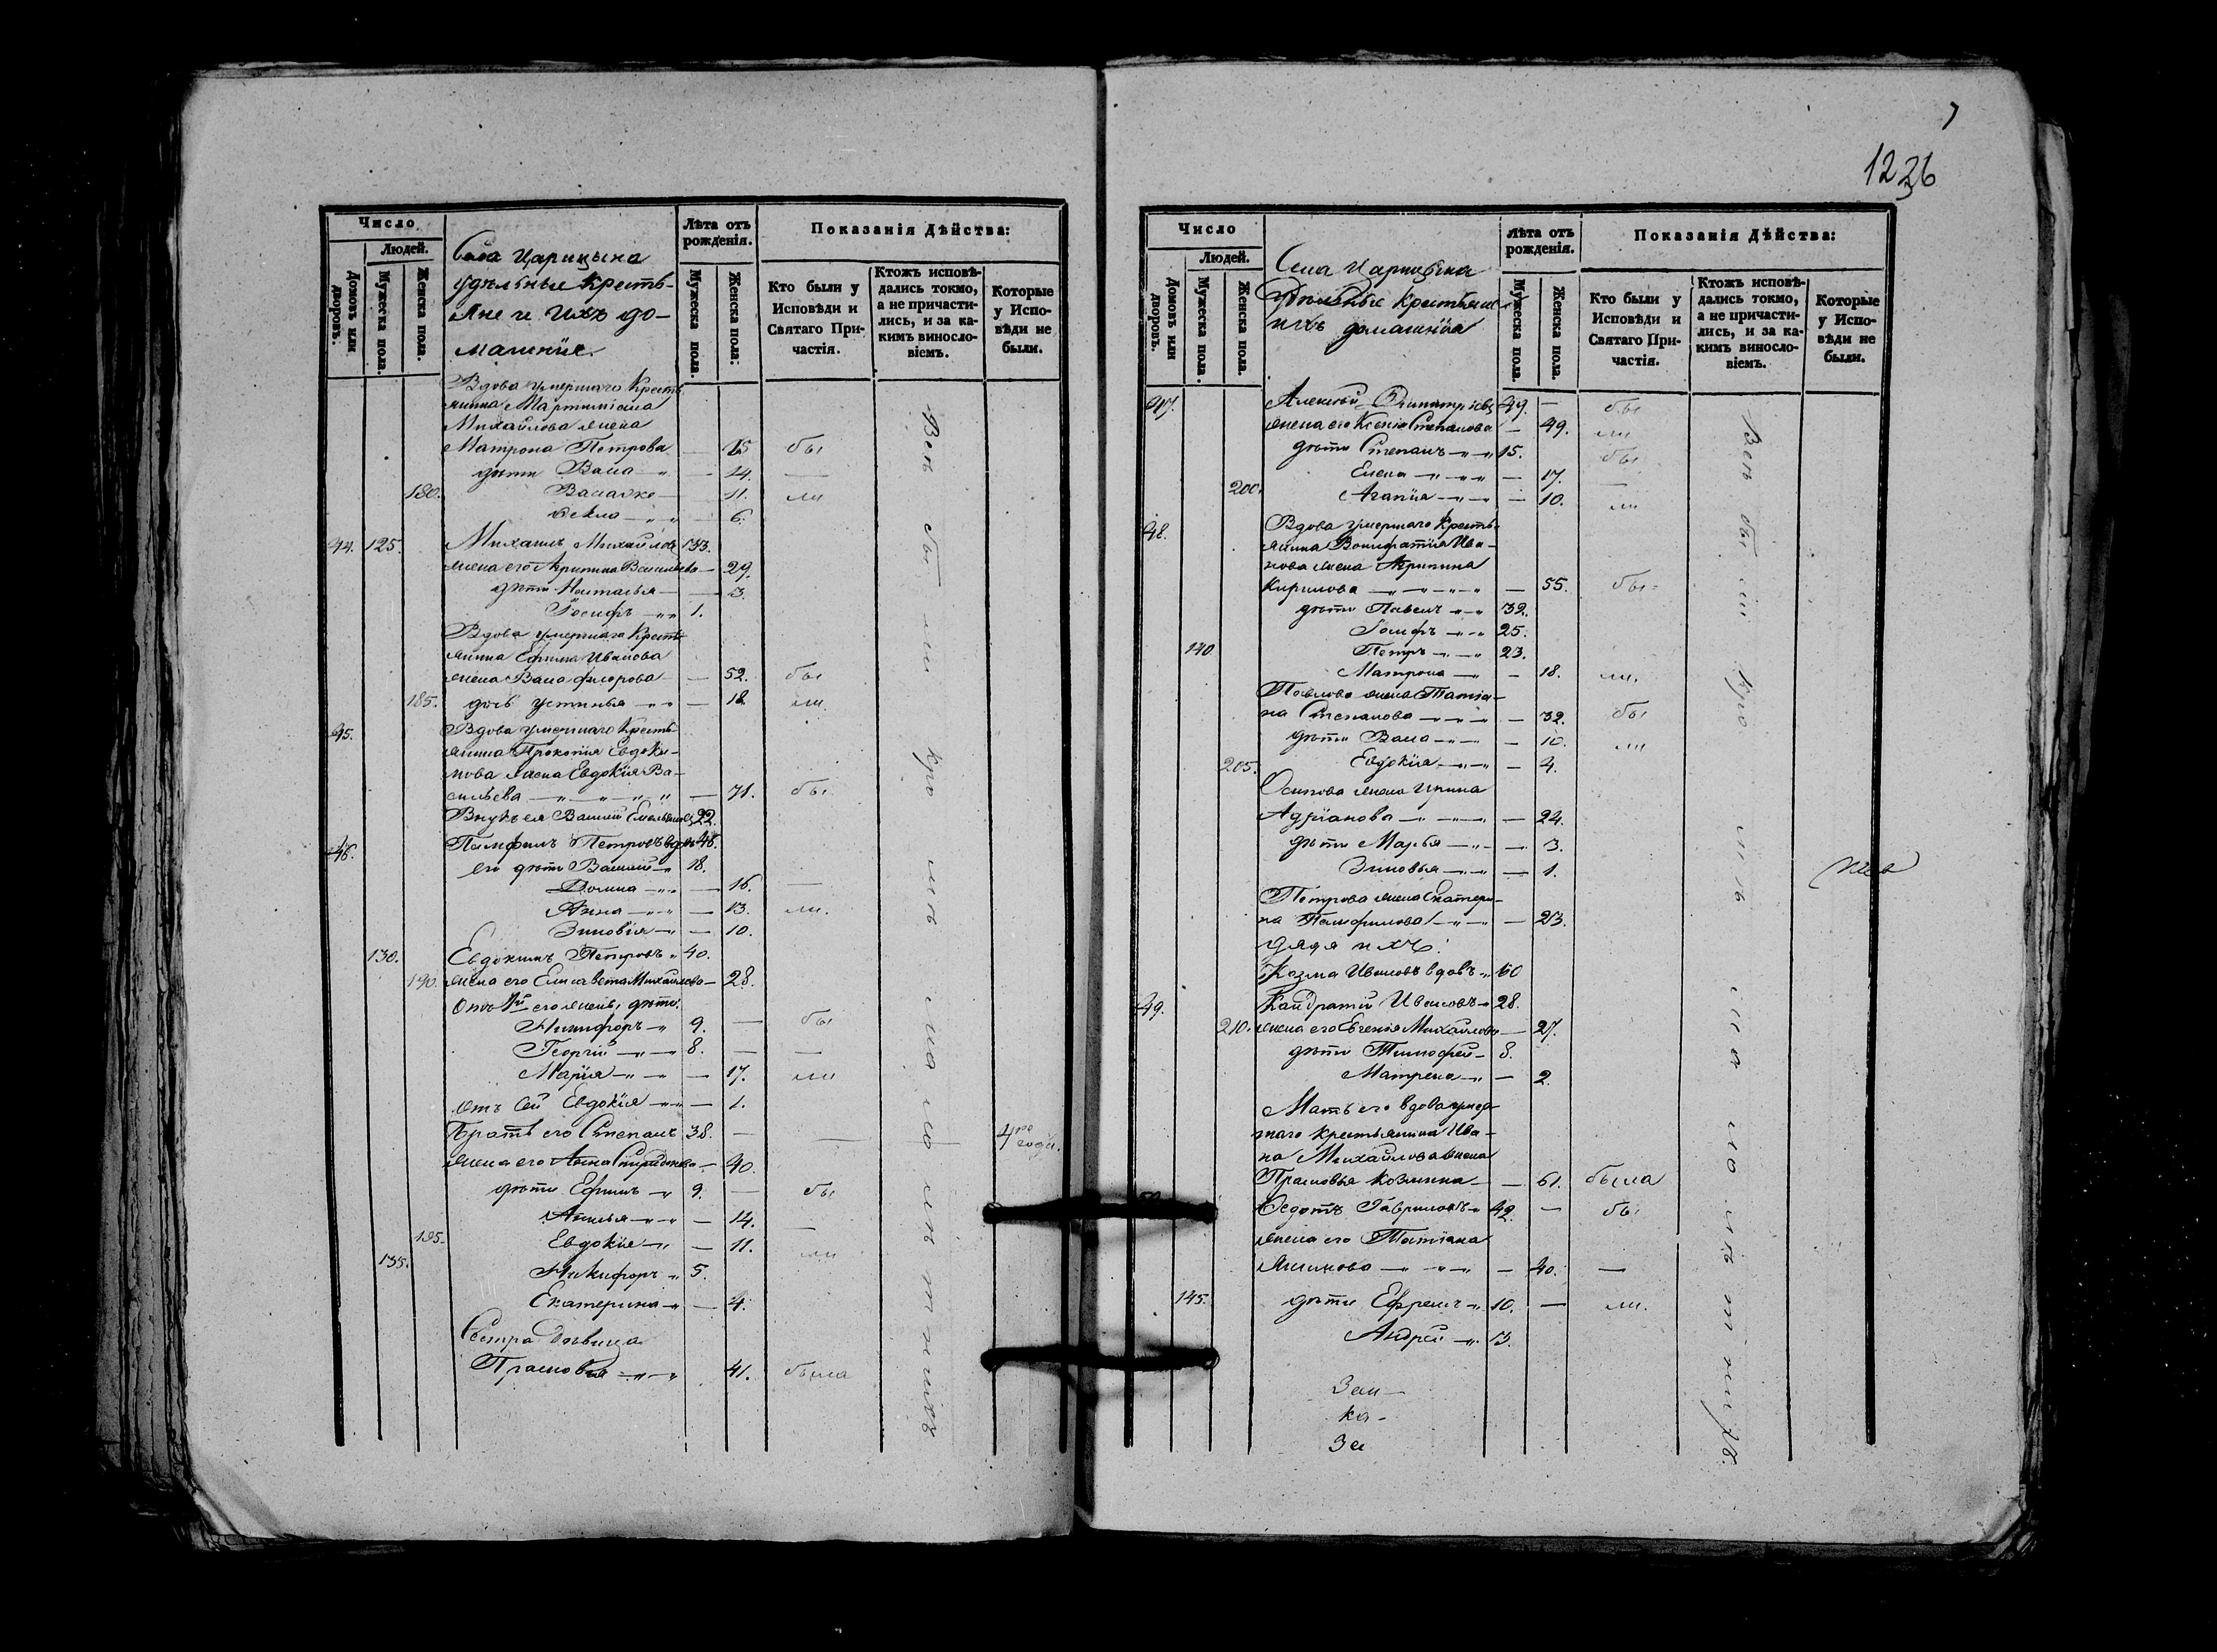 7
1226
Число
Людей.
Домовъ или дворовъ.
Мужеска пола.
Женска пола.
Села Царицына
удѣльные кресть-
яне и ихъ до-
машніе.
Лѣта отъ рожденія.
Мужеска пола.
Женска пола:
Показанія Дѣйства:
Кто были у Исповѣди и Святаго При-частія.
Ктожъ исповѣ-дались токмо, а не причасти-лись, и за ка-кимъ винослo-віемъ.
Которые у Испо-вѣди не были.
Вдова умершаго кресть
янина
Михайлова жена
Матрона Петрова — бы
дѣти — 14. —
180. — 11. ли
Ѳекла — 6.
44. 125. Михаилъ Михайловъ 33.
жена его Акрипина Васильева — 29.
дѣти Наталья — 3.
Іосифъ 1.
Вдова умершаго кресть
янина Ефима Иванова
жена Васа Флорова — 52. бы
185. дочь Устинья — 18. ли
45. Вдова умершаго кресть
янина Прокопія Евдоки-
мова жена Евдокія Ва-
сильева — 71. бы
Внукъ ея Василій Емельяновъ 22.
46. Памфилъ Петровъ вдовъ 48.
его дѣти Василій 18.
Домна — 16. —
Анна — 13. ли.
Зиновія — 10.
130. Евдокимъ Петровъ 40.
190. жена его Елисавета Михайлова — 28.
Отъ 1й его жены дѣти:
Никифоръ 9. — бы
Георгій 8. — —
Марія — 17. ли
отъ сей Евдокія — 1.
Братъ его Степанъ 38. — — 4ре года.
жена его Анна Спиридонова — 40.
дѣти Ефимъ 9. — бы
— 14. —
195. Евдокія — 11. ли
135. Никифоръ 5.
Екатерина — 4.
Сестра дѣвица
Прасковья 41. была
Число
Людей.
Домовъ или дворовъ.
Мужеска пола.
Женска пола.
Села Царицына
Удѣльные крестьяне и
ихъ домашнія
Лѣта отъ рожденія.
Мужеска пола.
Женска пола.
Показанія Дѣйства:
Кто были у Исповѣди и Святаго При-частія.
Ктожъ исповѣ-дались токмо, а не причасти-лись, и за ка-кимъ винослo-віемъ.
Которые у Испо-вѣди не были.
47. Алексѣй Димитріевъ 49. — бы
жена его Ксенія Степанова — 49. ли
дѣти Степанъ 15. бы
Елена — 17. —
200. Агапія — 10. ли
48. Вдова умершаго кресть-
янина Вонифатія Ива-
нова жена Акрипина
Кирилова — 55. бы-
дѣти Павелъ 32.
Іосифъ 25.
140 Петръ 23.
Матрона — 18. ли.
Павлова жена Татіа-
на Степанова — 32. бы
дѣти Васа — 10. ли
205. Евдокія — 4.
Осипова жена Ирина
Адріанова — 24.
дѣти Марья — 3.
Зиновья — 1.
Петрова жена Екатери-
на Памфилова — 23.
дядя ихъ:
Козма Ивановъ вдовъ 60
49. Кандратій Ивановъ 28.
210. жена его Евгенія Михайлова — 27.
дѣти Тимофей 8.
Матрена — 2.
Мать его вдова умер-
шаго крестьянина Ива-
на Михайлова жена
Прасковья Козмина — 61. была
Ѳедотъ Гавриловъ 42. — бы
жена его Татіана
— 40. —
145. дѣти Ефремъ 10. — ли.
Андрей 3.